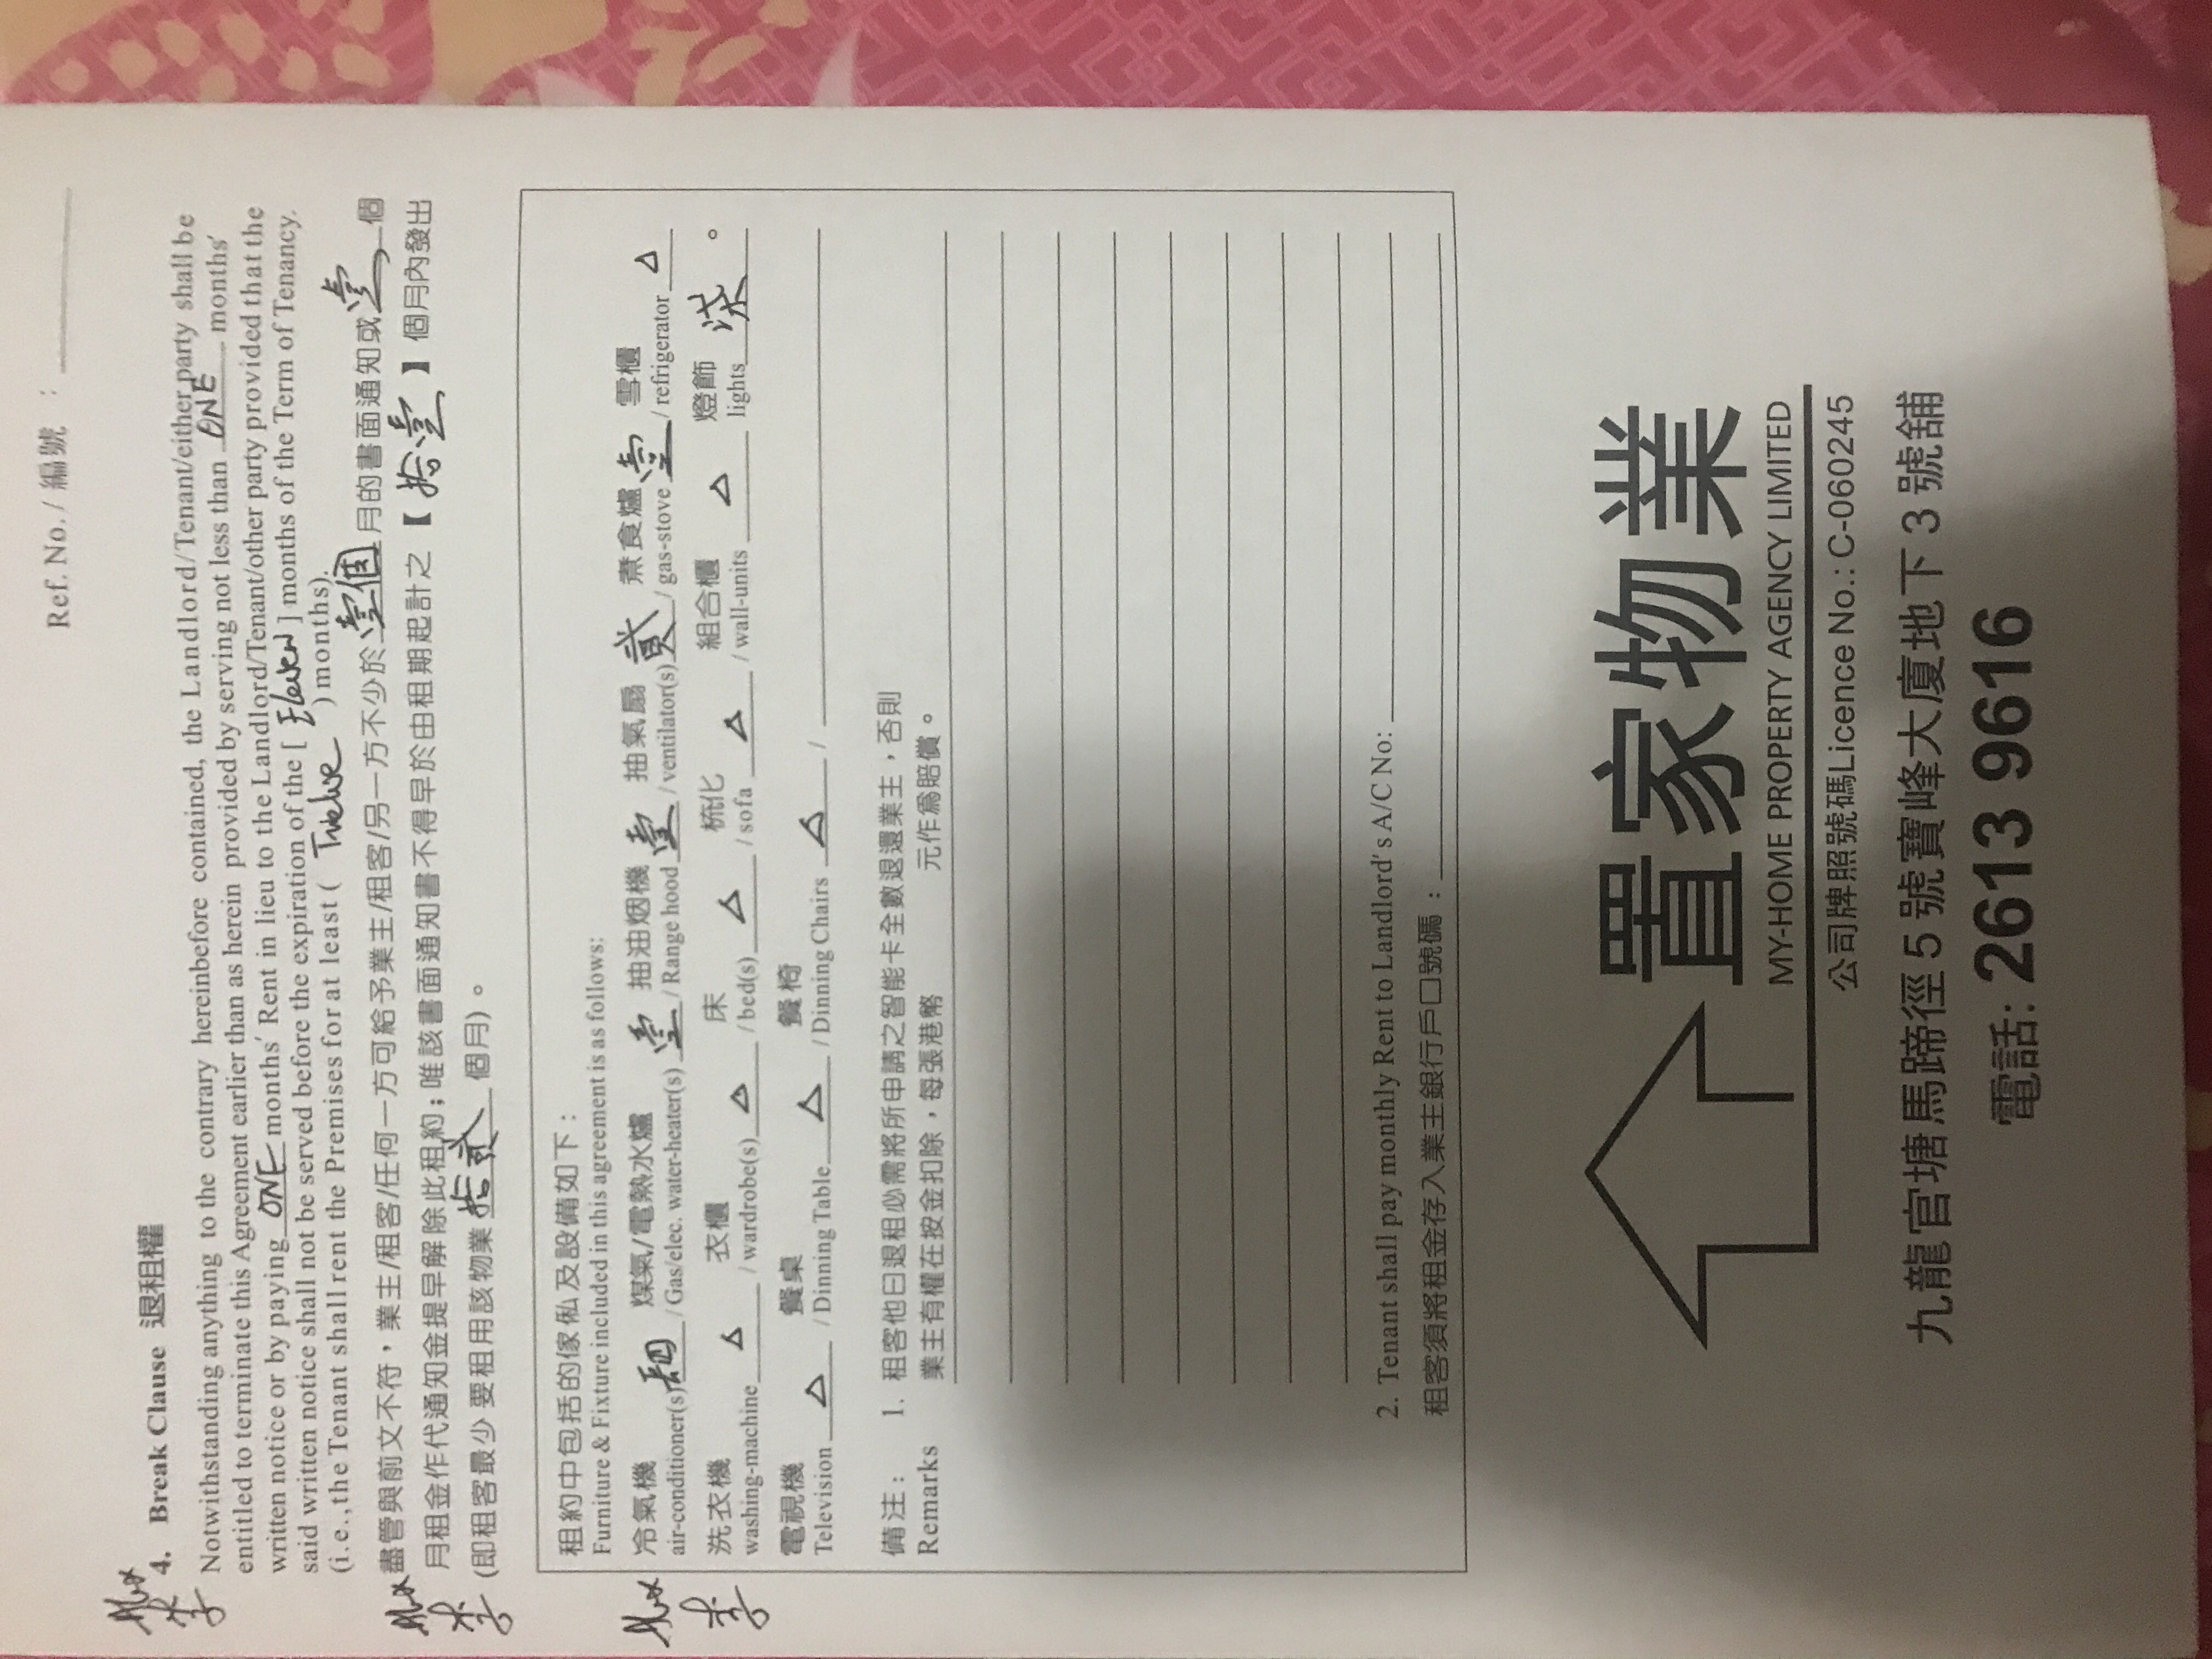 Ref. No. / 編號 :
4. Break Clause 退租權
Notwithstanding anything to the contrary hereinbefore contained, the Landlord/Tenant/either party shall be
entitled to terminate this Agreement earlier than as herein provided by serving not less than ONE months'
written notice or by paying ONE months' Rent in lieu to the Landlord/Tenant/other party provided that the
said written notice shall not be served before the expiration of the [ Eleven ] months of the Term of Tenancy.
(i.e., the Tenant shall rent the Premises for at least ( Twelve ) months).
盡管與前文不符，業主/租客/任何一方可給予業主/租客/另一方不少於壹個月的書面通知或壹個
月租金作代通知金提早解除此租約；唯該書面通知書不得早於由租期起計之【拾壹】個月內發出
(即租客最少要租用該物業拾貳個月)。
租約中包括的傢俬及設備如下：
Furniture & Fixture included in this agreement is as follows:
冷氣機 煤氣/電熱水爐 抽油烟機 抽氣扇 煮食爐 雪櫃
air-conditioner(s) / Gas/elec. water-heater(s) 壹 / Range hood 壹 / ventilator(s) 貳 / gas-stove 壹 / refrigerator △
洗衣機 衣櫃 床 梳化 組合櫃 燈飾
washing-machine △ / wardrobe(s) △ / bed(s) △ / sofa △ / wall-units △ lights 柒。
電視機 餐桌 餐椅
Television △ / Dinning Table △ / Dinning Chairs △ /
備注： 1. 租客他日退租必需將所申請之智能卡全數退還業主，否則
Remarks 業主有權在按金扣除，每張港幣 元作為賠償。
2. Tenant shall pay monthly Rent to Landlord's A/C No:
租客須將租金存入業主銀行戶口號碼：
置家物業
MY-HOME PROPERTY AGENCY LIMITED
公司牌照號碼Licence No.: C-060245
九龍官塘馬蹄徑5號寶峰大廈地下3號舖
電話: 2613 9616